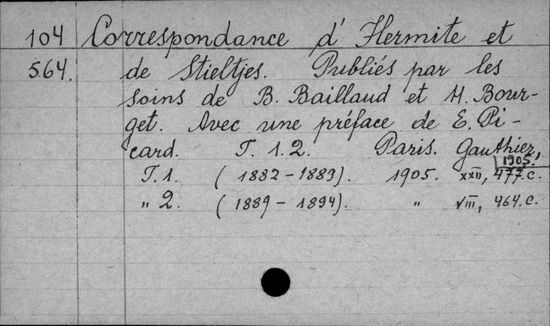 104 Correspondance d'Hermite et
564. de Stieltjes. Publiés par les
soins de B. Baillaud et H. Bour-
get. Avec une préface de E. Pi-
card. T. 1. 2. Paris. Gauthier,
1905.
T. 1. (1882-1889). 1905. XXII, 477 c.
„ 2. (1889-1894). „ VIII, 464. c.